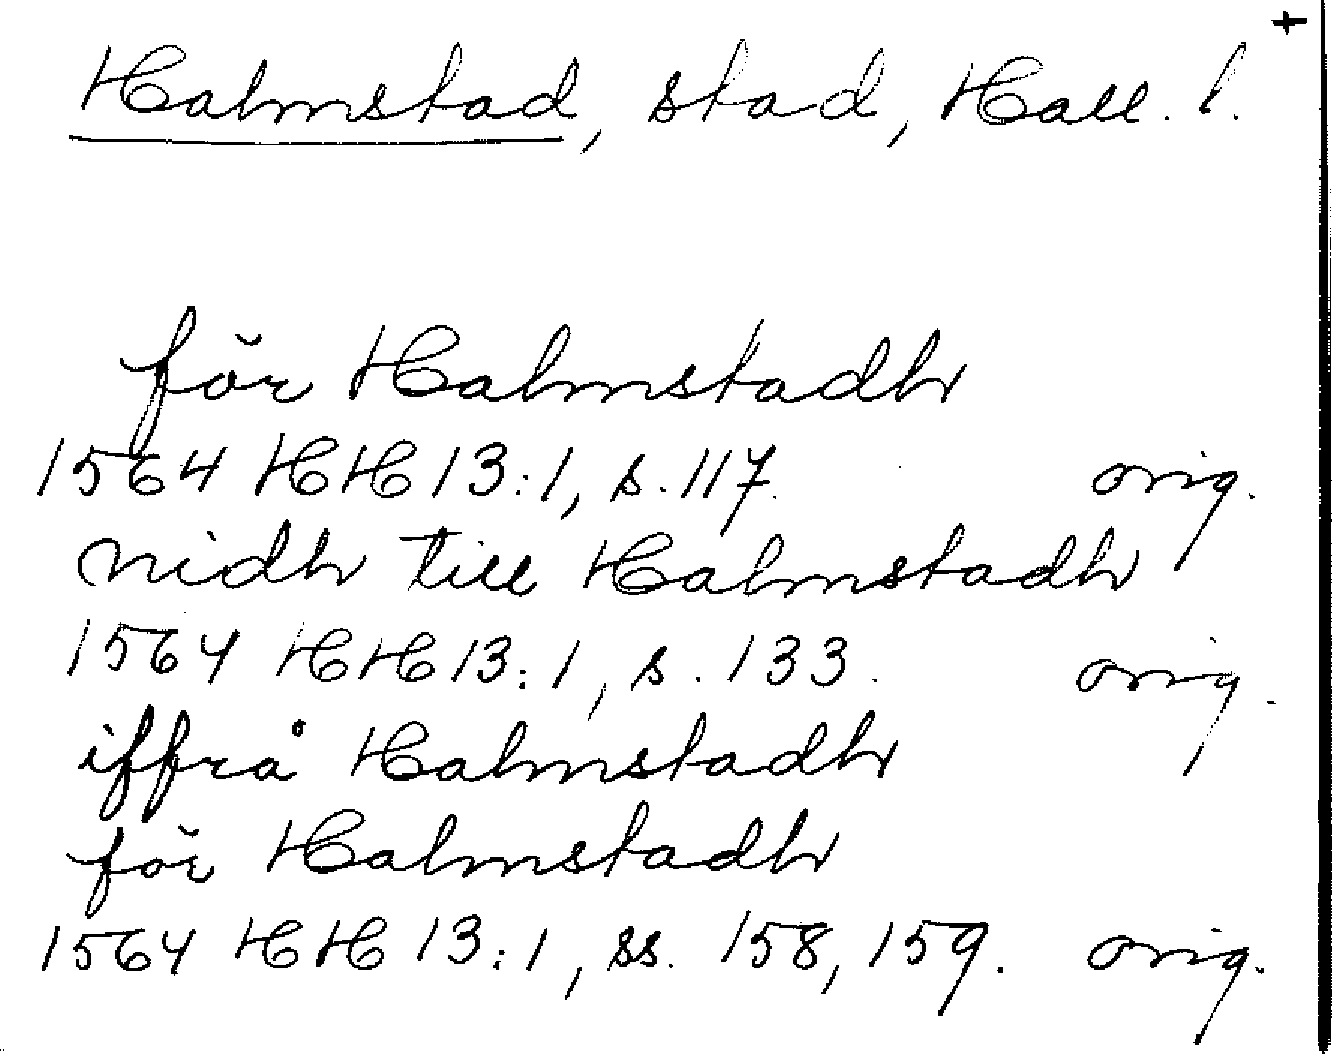 +
Halmstad, stad, Hall. l.
för Halmstadh
1564 HH 13:1, s. 117. orig.
nidh till Halmstadh
1564 HH 13:1, s. 133. orig.
iffrå Halmstadh
för Halmstadh
1564 HH 13:1, ss. 158, 159. orig.